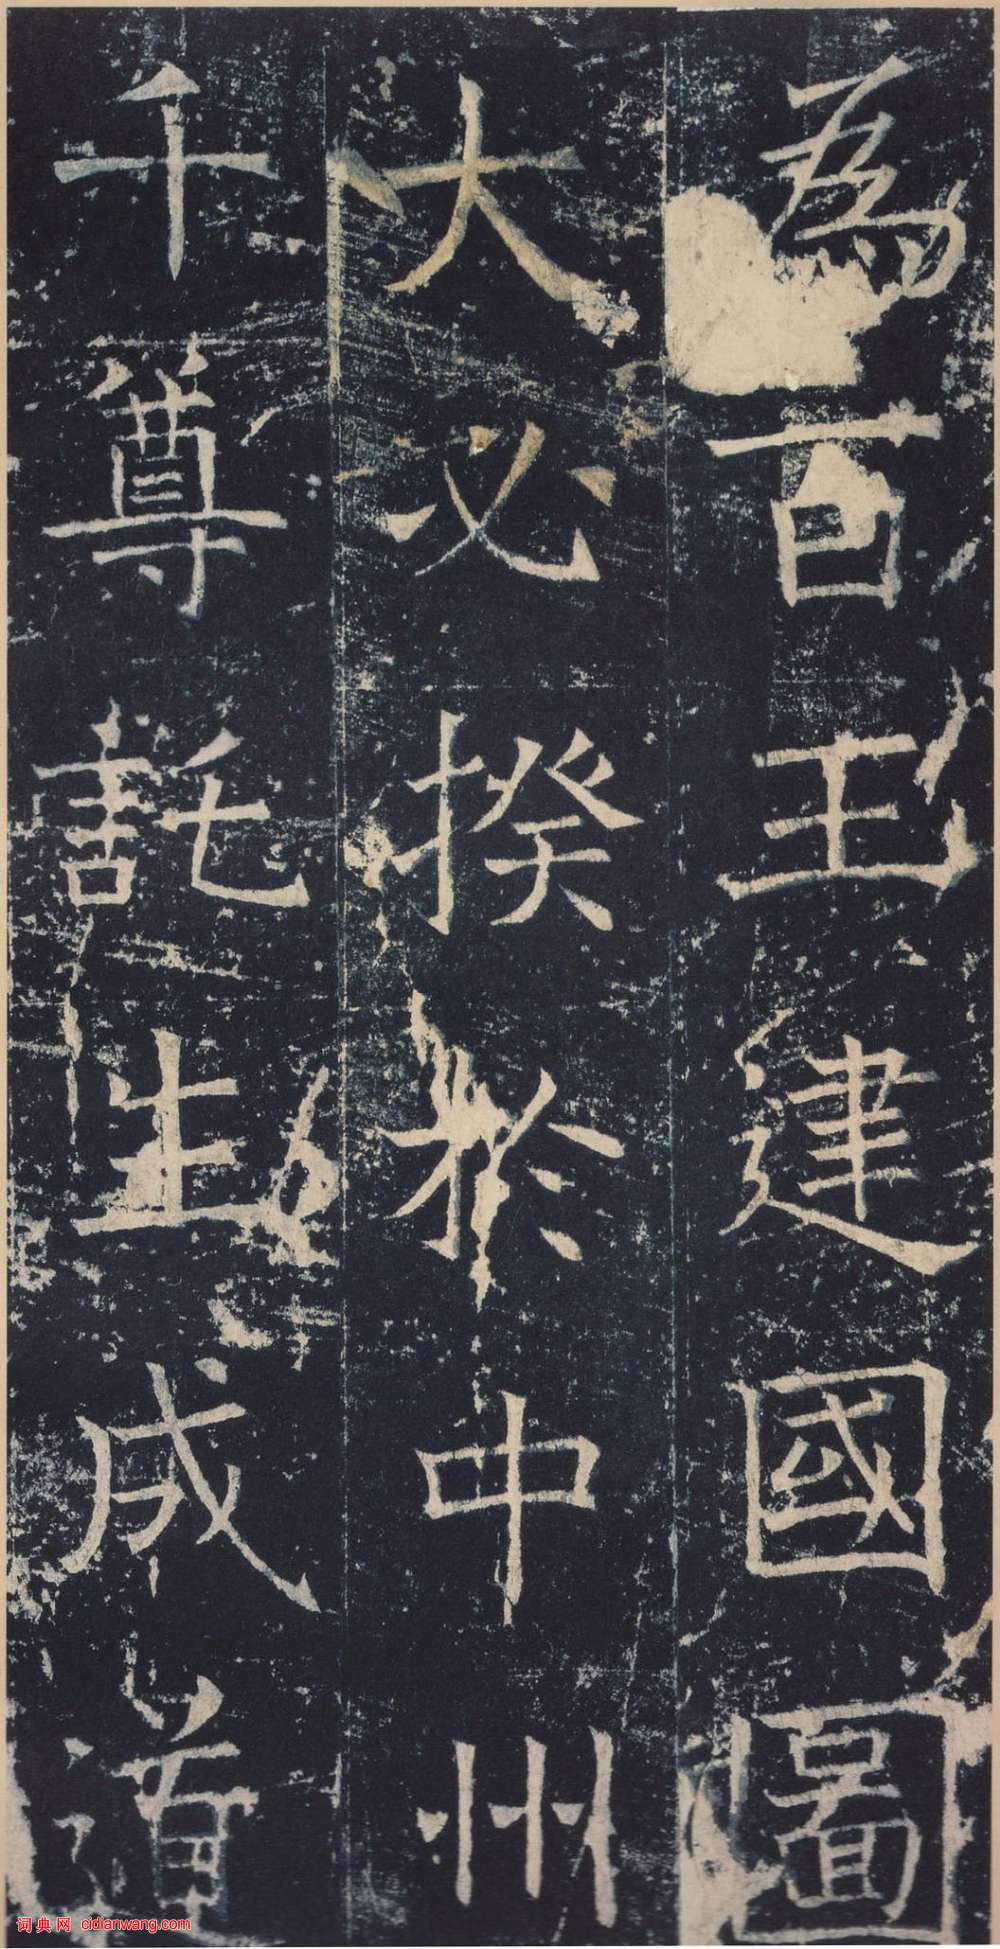 為百王建國圖
大必揆於中州
千尊託生成道
词典网 cidianwang.com